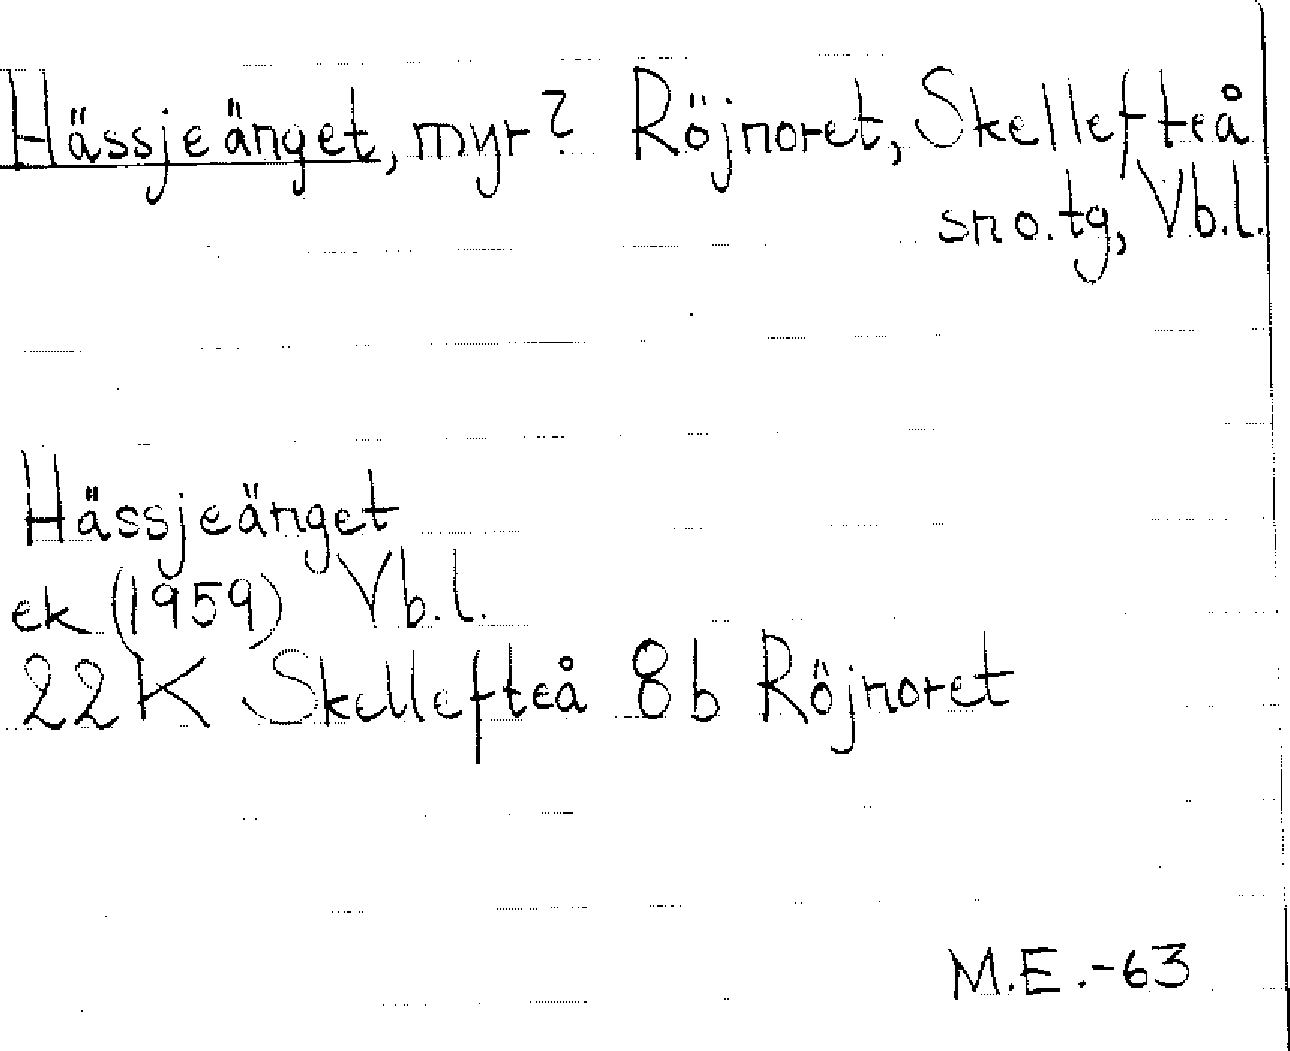 Hässjeänget, myr? Röjnoret, Skellefteå
sn o. tg, Vb.l.
Hässjeänget
ek (1959) Vb.l.
22K Skellefteå 8b Röjnoret
M.E.-63